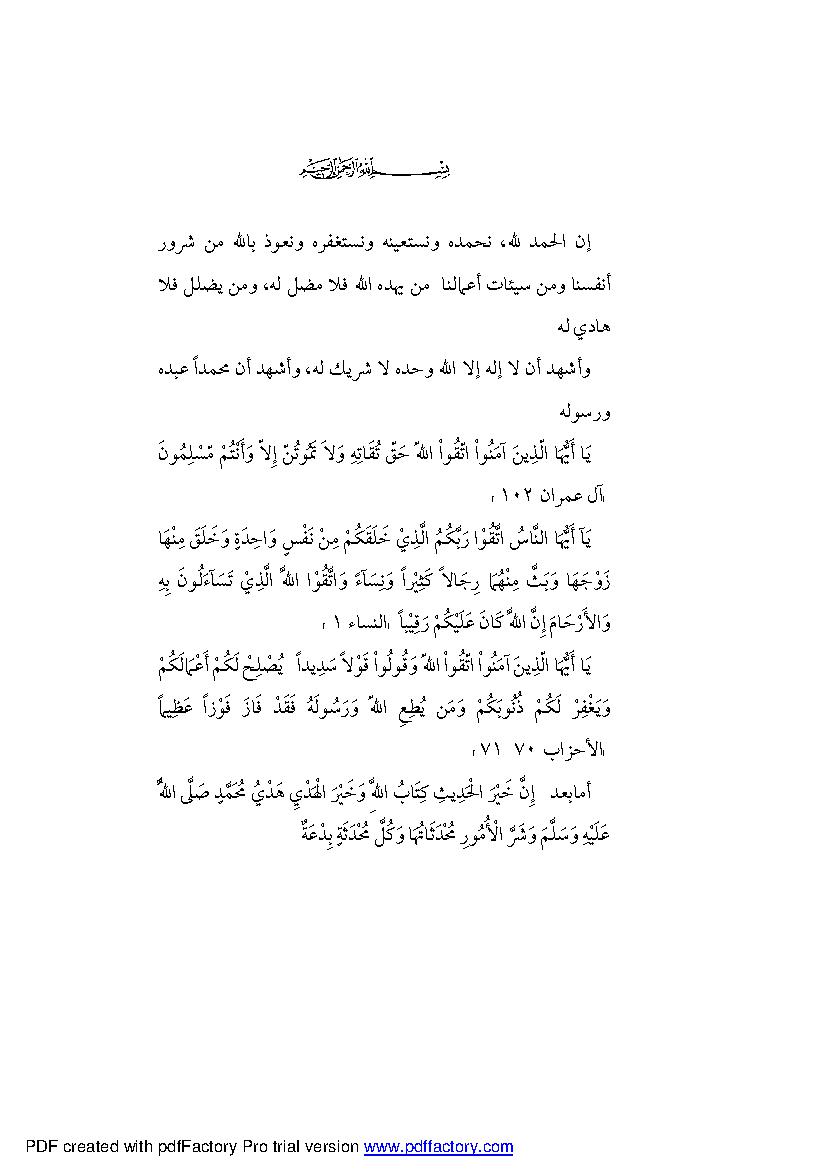 بسم الله الرحمن الرحيم
إن الحمد لله، نحمده ونستعينه ونستغفره ونعوذ بالله من شرور
أنفسنا ومن سيئات أعمالنا من يهده الله فلا مضل له، ومن يضلل فلا
هادي له
وأشهد أن لا إله إلا الله وحده لا شريك له، وأشهد أن محمداً عبده
ورسوله
يَا أَيُّهَا الَّذِينَ آمَنُواْ اتَّقُواْ اللهَ حَقَّ تُقَاتِهِ وَلاَ تَمُوتُنَّ إِلاَّ وَأَنْتُمْ مُّسْلِمُونَ
آل عمران ١٠٢
يَآ أَيُّهَا النَّاسُ اتَّقُوْا رَبَّكُمُ الَّذِيْ خَلَقَكُمْ مِنْ نَفْسٍ وَاحِدَةٍ وَخَلَقَ مِنْهَا
زَوْجَهَا وَبَثَّ مِنْهُمَا رِجَالاً كَثِيْراً وَنِسَآءً وَاتَّقُوْا اللهَ الَّذِيْ تَسَآءَلُونَ بِهِ
وَالأَرْحَامَ إِنَّ اللهَ كَانَ عَلَيْكُمْ رَقِيْباً النساء ١
يَا أَيُّهَا الَّذِينَ آمَنُواْ اتَّقُواْ اللهَ وَقُولُواْ قَوْلاً سَدِيداً يُصْلِحْ لَكُمْ أَعْمَالَكُمْ
وَيَغْفِرْ لَكُمْ ذُنُوبَكُمْ وَمَن يُطِعِ اللهَ وَرَسُولَهُ فَقَدْ فَازَ فَوْزاً عَظِيماً
الأحزاب ٧٠ ٧١
أمابعد إِنَّ خَيْرَ الْحَدِيثِ كِتَابُ اللهِ وَخَيْرَ الْهَدْيِ هَدْيُ مُحَمَّدٍ صَلَّى اللهُ
عَلَيْهِ وَسَلَّمَ وَشَرَّ الْأُمُورِ مُحْدَثَاتُهَا وَكُلَّ مُحْدَثَةٍ بِدْعَةٌ
PDF created with pdfFactory Pro trial version www.pdffactory.com